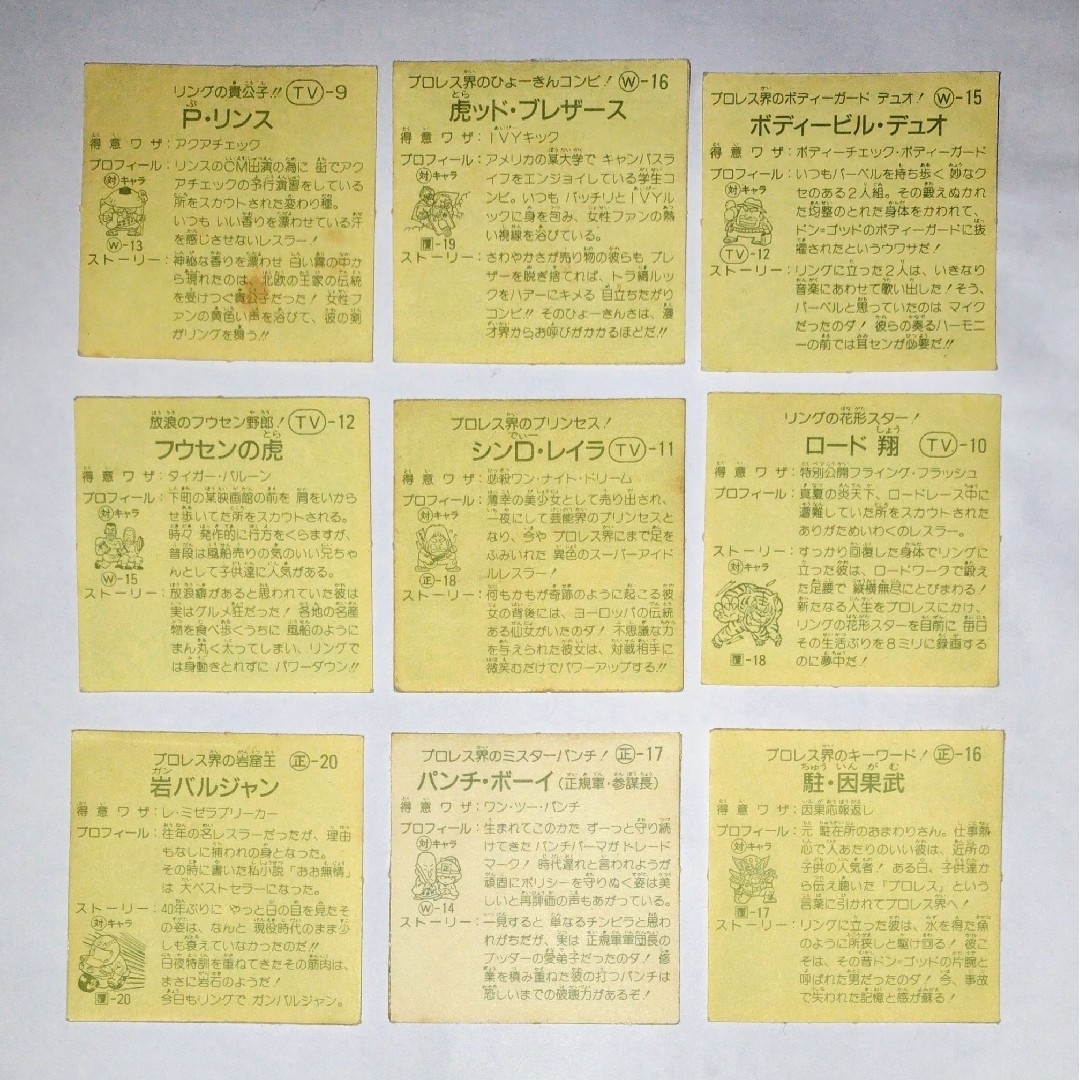 リングの貴公子!! TV-9
P・リンス
得意ワザ：アクアチェック
プロフィール：リンスのCM出演の為に 街でアク
アチェックの予行演習をしている
所をスカウトされた変わり種。
いつも いい香りを漂わせている汗
を感じさせないレスラー！
対キャラ
W-13
ストーリー：神秘な香りを漂わせ 白い霧の中か
ら現れたのは、北欧の王家の伝統
を受けつぐ貴公子だった！ 女性フ
ァンの黄色い声を浴びて、彼の剣
がリングを舞う!!
プロレス界のひょーきんコンビ！ W-16
虎ッド・ブレザース
得意ワザ：IVYキック
プロフィール：アメリカの某大学で キャンパスラ
イフをエンジョイしている学生コ
ンビ。いつも バッチリとIVYル
ックに身を包み、女性ファンの熱
い視線を浴びている。
対キャラ
覆-19
ストーリー：さわやかさが売り物の彼らも ブレ
ザーを脱ぎ捨てれば、トラ縞ルッ
クをハデーにキメる 目立ちたがり
コンビ!! そのひょーきんさは、漫
才界からお呼びがかかるほどだ!!
プロレス界のボディーガード デュオ！ W-15
ボディービル・デュオ
得意ワザ：ボディーチェック・ボディーガード
プロフィール：いつもバーベルを持ち歩く 妙なク
セのある2人組。その鍛えぬかれ
た均整のとれた身体をかわれて、
ドン=ゴッドのボディーガードに抜
擢されたというウワサだ！
対キャラ
TV-12
ストーリー：リングに立った2人は、いきなり
音楽にあわせて歌い出した！そう、
バーベルと思っていたのは マイク
だったのダ！ 彼らの奏るハーモニ
ーの前では耳センが必要だ!!
放浪のフウセン野郎！ TV-12
フウセンの虎
得意ワザ：タイガー・バルーン
プロフィール：下町の某映画館の前を 肩をいから
せ歩いてた所をスカウトされる。
時々 発作的に行方をくらますが、
普段は風船売りの気のいい兄ちゃ
んとして子供達に人気がある。
対キャラ
W-15
ストーリー：放浪癖があると思われていた彼は
実はグルメ狂だった！ 各地の名産
物を食べ歩くうちに 風船のように
まん丸く太ってしまい、リングで
は身動きとれずに パワーダウン!!
プロレス界のプリンセス！
シンD・レイラ TV-11
得意ワザ：必殺ワン・ナイト・ドリーム
プロフィール：薄幸の美少女として売り出され、
一夜にして芸能界のプリンセスと
なり、今や プロレス界にまで足を
ふみいれた 異色のスーパーアイド
ルレスラー！
対キャラ
正-18
ストーリー：何もかもが奇跡のように起こる彼
女の背後には、ヨーロッパの伝統
ある仙女がいたのダ！ 不思議な力
を与えられた彼女は、対戦相手に
微笑むだけでパワーアップする!!
リングの花形スター！
ロード 翔 TV-10
得意ワザ：特別公開フライング・フラッシュ
プロフィール：真夏の炎天下、ロードレース中に
遭難していた所をスカウトされた
ありがためいわくのレスラー。
ストーリー：すっかり回復した身体でリングに
立った彼は、ロードワークで鍛え
た足腰で 縦横無尽にとびまわる！
新たなる人生をプロレスにかけ、
リングの花形スターを目前に 毎日
その生活ぶりを8ミリに録画する
のに夢中だ！
対キャラ
覆-18
プロレス界の岩窟王 正-20
岩バルジャン
得意ワザ：レ・ミゼラブリーカー
プロフィール：往年の名レスラーだったが、理由
もなしに捕われの身となった。
その時に書いた私小説「おお無情」
は 大ベストセラーになった。
ストーリー：40年ぶりに やっと日の目を見たそ
の姿は、なんと 現役時代のまま少
しも衰えていなかったのだ!!
日夜特訓を重ねてきたその筋肉は、
まさに岩石のようだ！
今日もリングで ガンバルジャン。
対キャラ
覆-20
プロレス界のミスターパンチ！ 正-17
パンチ・ボーイ(正規軍・参謀長)
得意ワザ：ワン・ツー・パンチ
プロフィール：生まれてこのかた ずーっと守り続
けてきた パンチパーマがトレード
マーク！ 時代遅れと言われようが
頑固にポリシーを守りぬく姿は美
しいと再評価の声もあがっている。
対キャラ
W-14
ストーリー：一見すると 単なるチンピラと思わ
れがちだが、実は 正規軍軍団長の
ブッダーの愛弟子だったのダ！ 修
業を積み重ねた彼の打つパンチは
恐しいまでの破壊力があるぞ！
プロレス界のキーワード！ 正-16
駐・因果武
得意ワザ：因果応報返し
プロフィール：元 駐在所のおまわりさん。仕事熱
心で人あたりのいい彼は、近所の
子供の人気者！ ある日、子供達か
ら伝え聴いた「プロレス」という
言葉に引かれてプロレス界へ！
対キャラ
覆-17
ストーリー：リングに立った彼は、水を得た魚
のように所狭しと駆け回る！ 彼こ
そは、その昔ドン=ゴッドの片腕と
呼ばれた男だったのダ！ 今、事故
で失われた記憶と感が蘇る！